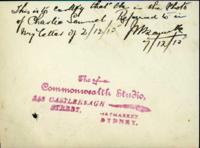 This is to certify that this is the Photo
of Charlie Samuel, Referred to in
my letter of 2/12/10
7/12/10
The
Commonwealth Studio,
CASTLEREAGH
STREET,
HAYMARKET
SYDNEY.